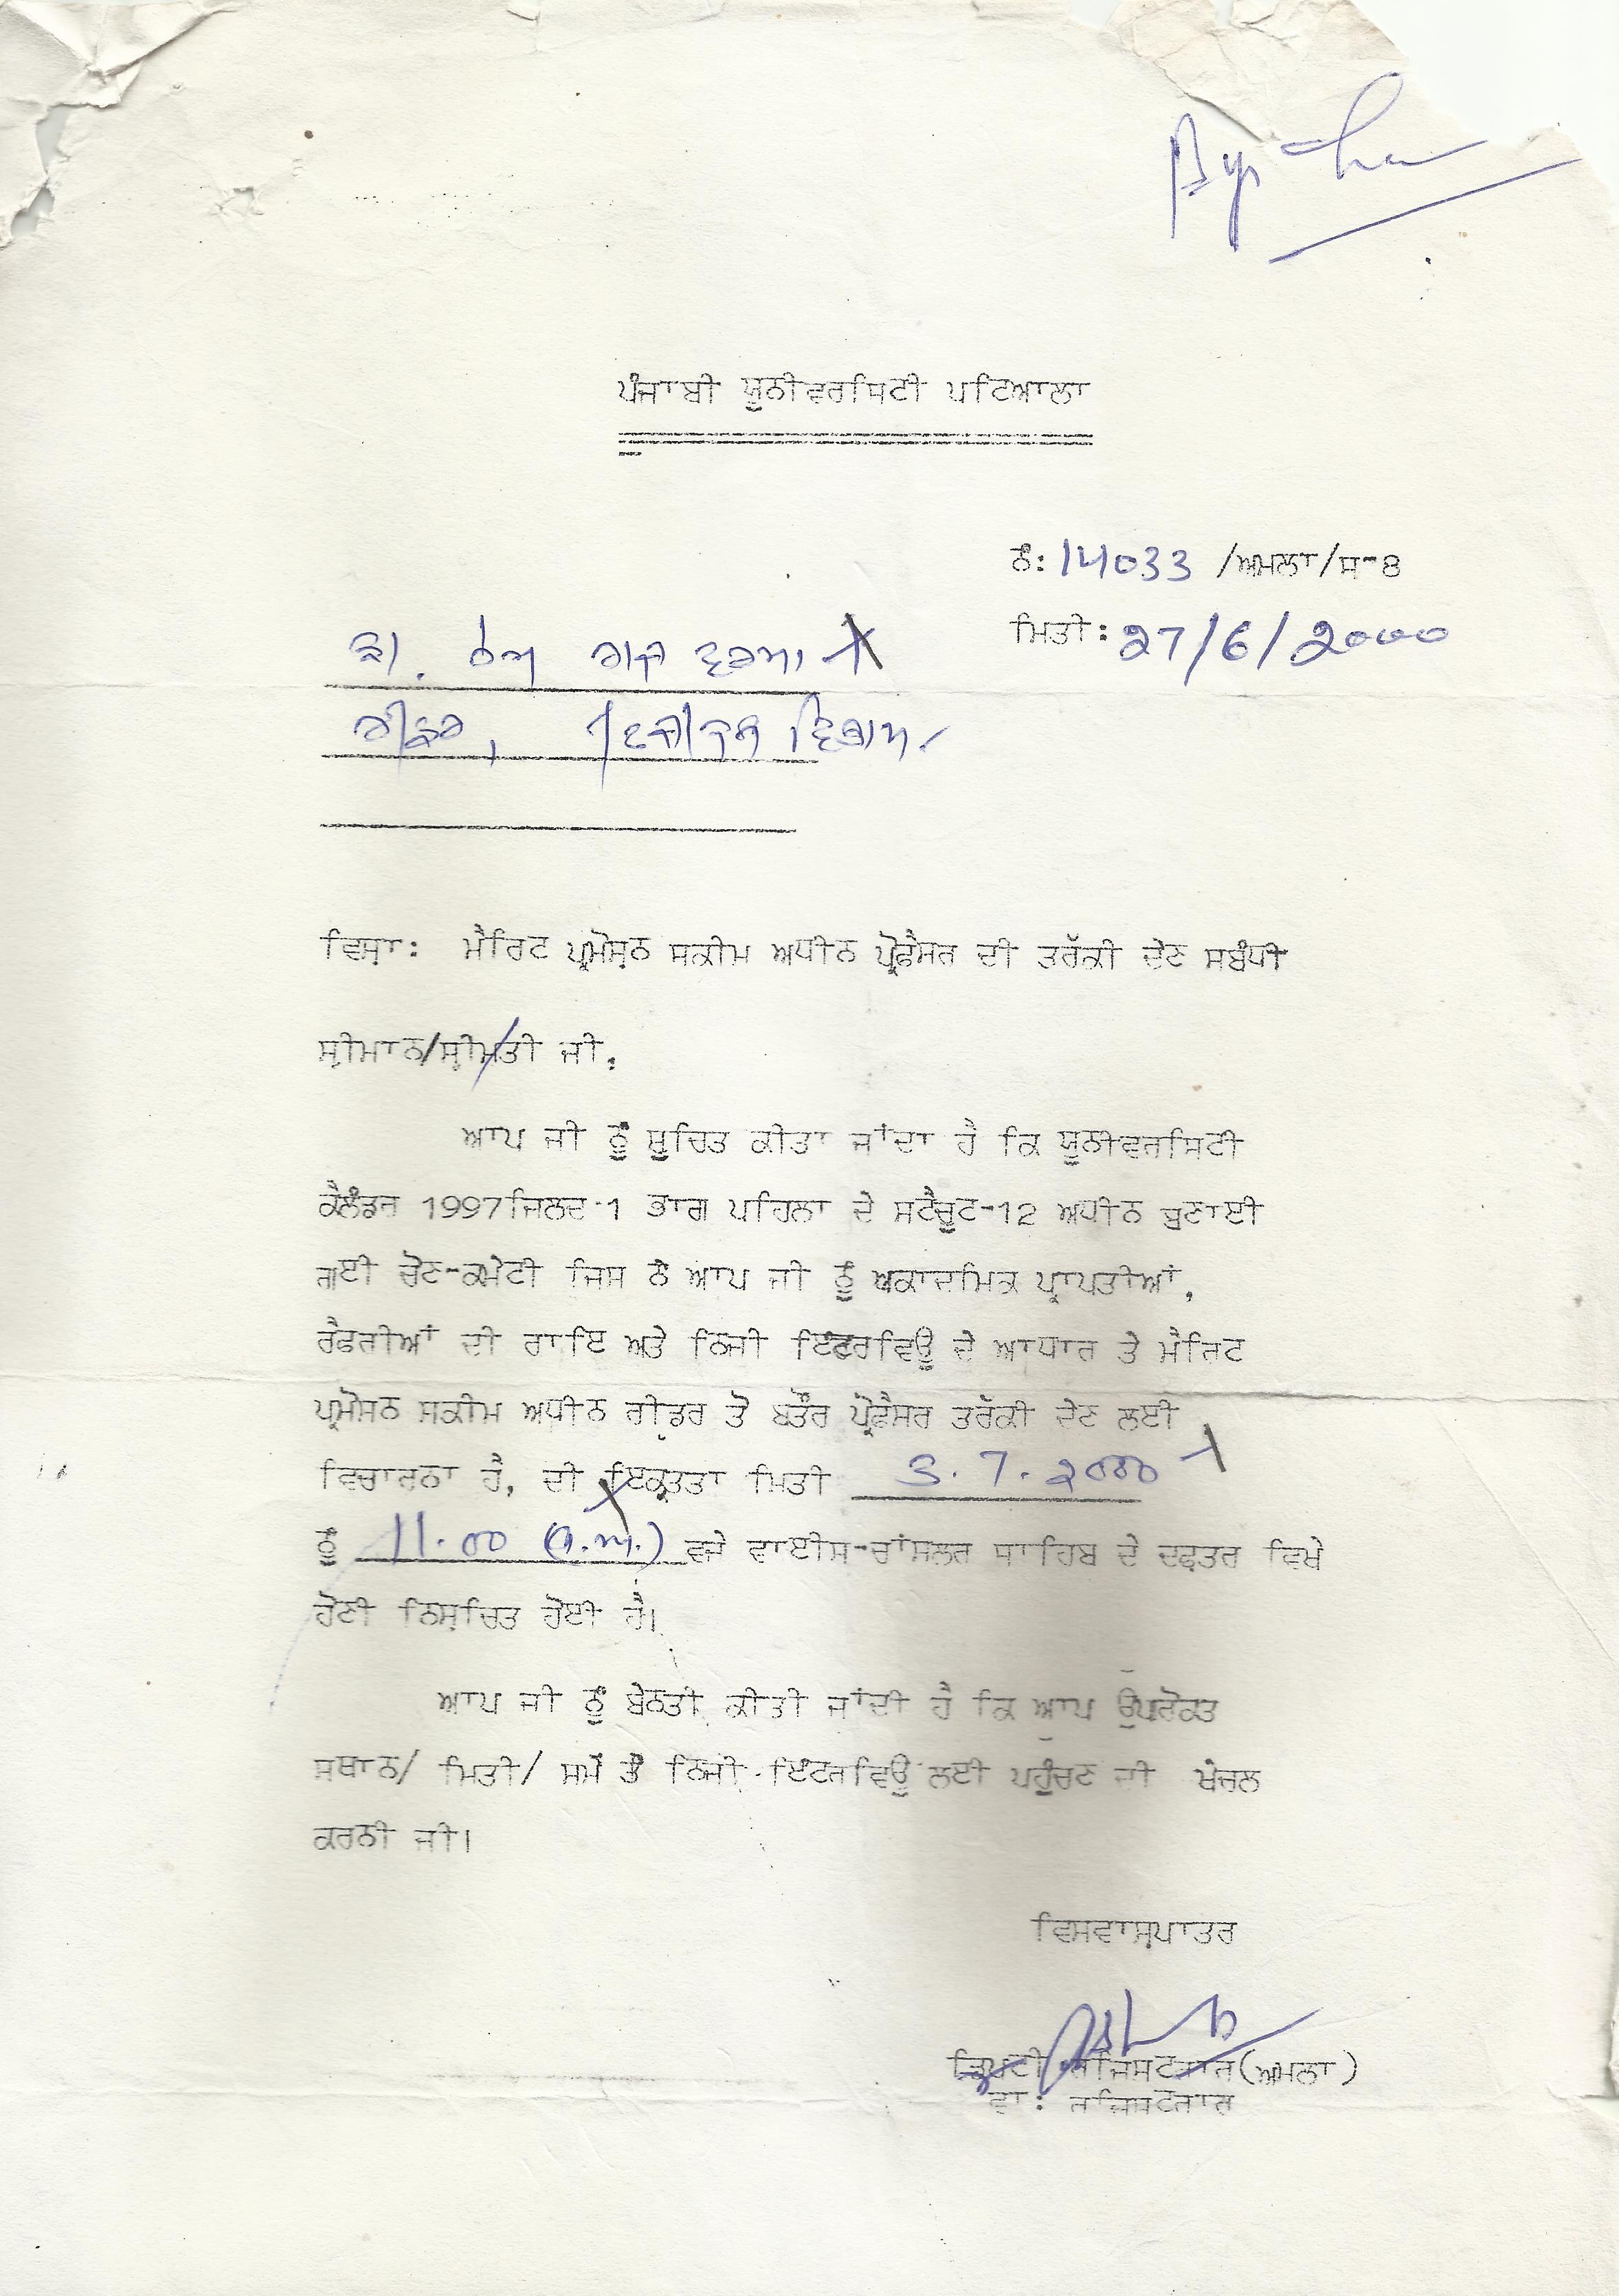 ਪੰਜਾਬੀ ਯੂਨੀਵਰਸਿਟੀ ਪਟਿਆਲਾ
ਨੰ: 14033 /ਅਮਲਾ/ਸ-8
ਮਿਤੀ: 27/6/2000
ਡਾ. ਹੇਮ ਰਾਜ ਵਰਮਾ
ਰੀਡਰ, ਵਿਭਾਗ
ਵਿਸ਼ਾ: ਮੈਰਿਟ ਪ੍ਰਮੋਸ਼ਨ ਸਕੀਮ ਅਧੀਨ ਪ੍ਰੋਫ਼ੈਸਰ ਦੀ ਤਰੱਕੀ ਦੇਣ ਸਬੰਧੀ
ਸ਼੍ਰੀਮਾਨ/ਸ਼੍ਰੀਮਤੀ ਜੀ,
ਆਪ ਜੀ ਨੂੰ ਸੂਚਿਤ ਕੀਤਾ ਜਾਂਦਾ ਹੈ ਕਿ ਯੂਨੀਵਰਸਿਟੀ
ਕੈਲੰਡਰ 1997 ਜਿਲਦ-1 ਭਾਗ ਪਹਿਲਾ ਦੇ ਸਟੈਚੂਟ-12 ਅਧੀਨ ਬਣਾਈ
ਗਈ ਚੋਣ-ਕਮੇਟੀ ਜਿਸ ਨੇ ਆਪ ਜੀ ਨੂੰ ਅਕਾਦਮਿਕ ਪ੍ਰਾਪਤੀਆਂ,
ਰੈਫਰੀਆਂ ਦੀ ਰਾਇ ਅਤੇ ਨਿਜੀ ਇੰਟਰਵਿਊ ਦੇ ਆਧਾਰ ਤੇ ਮੈਰਿਟ
ਪ੍ਰਮੋਸ਼ਨ ਸਕੀਮ ਅਧੀਨ ਰੀਡਰ ਤੋਂ ਬਤੌਰ ਪ੍ਰੋਫ਼ੈਸਰ ਤਰੱਕੀ ਦੇਣ ਲਈ
ਵਿਚਾਰਨਾ ਹੈ, ਦੀ ਇਕੱਤਰਤਾ ਮਿਤੀ 3.7.2000
ਨੂੰ 11.00 (a.m.) ਵਜੇ ਵਾਈਸ-ਚਾਂਸਲਰ ਸਾਹਿਬ ਦੇ ਦਫ਼ਤਰ ਵਿਖੇ
ਹੋਣੀ ਨਿਸ਼ਚਿਤ ਹੋਈ ਹੈ।
ਆਪ ਜੀ ਨੂੰ ਬੇਨਤੀ ਕੀਤੀ ਜਾਂਦੀ ਹੈ ਕਿ ਆਪ ਉਪਰੋਕਤ
ਸਥਾਨ/ ਮਿਤੀ/ ਸਮੇਂ ਤੇ ਨਿਜੀ ਇੰਟਰਵਿਊ ਲਈ ਪਹੁੰਚਣ ਦੀ ਖੇਚਲ
ਕਰਨੀ ਜੀ।
ਵਿਸ਼ਵਾਸ਼ਪਾਤਰ
ਡਿਪਟੀ ਰਜਿਸਟਰਾਰ (ਅਮਲਾ)
ਵਾ: ਰਜਿਸਟਰਾਰ